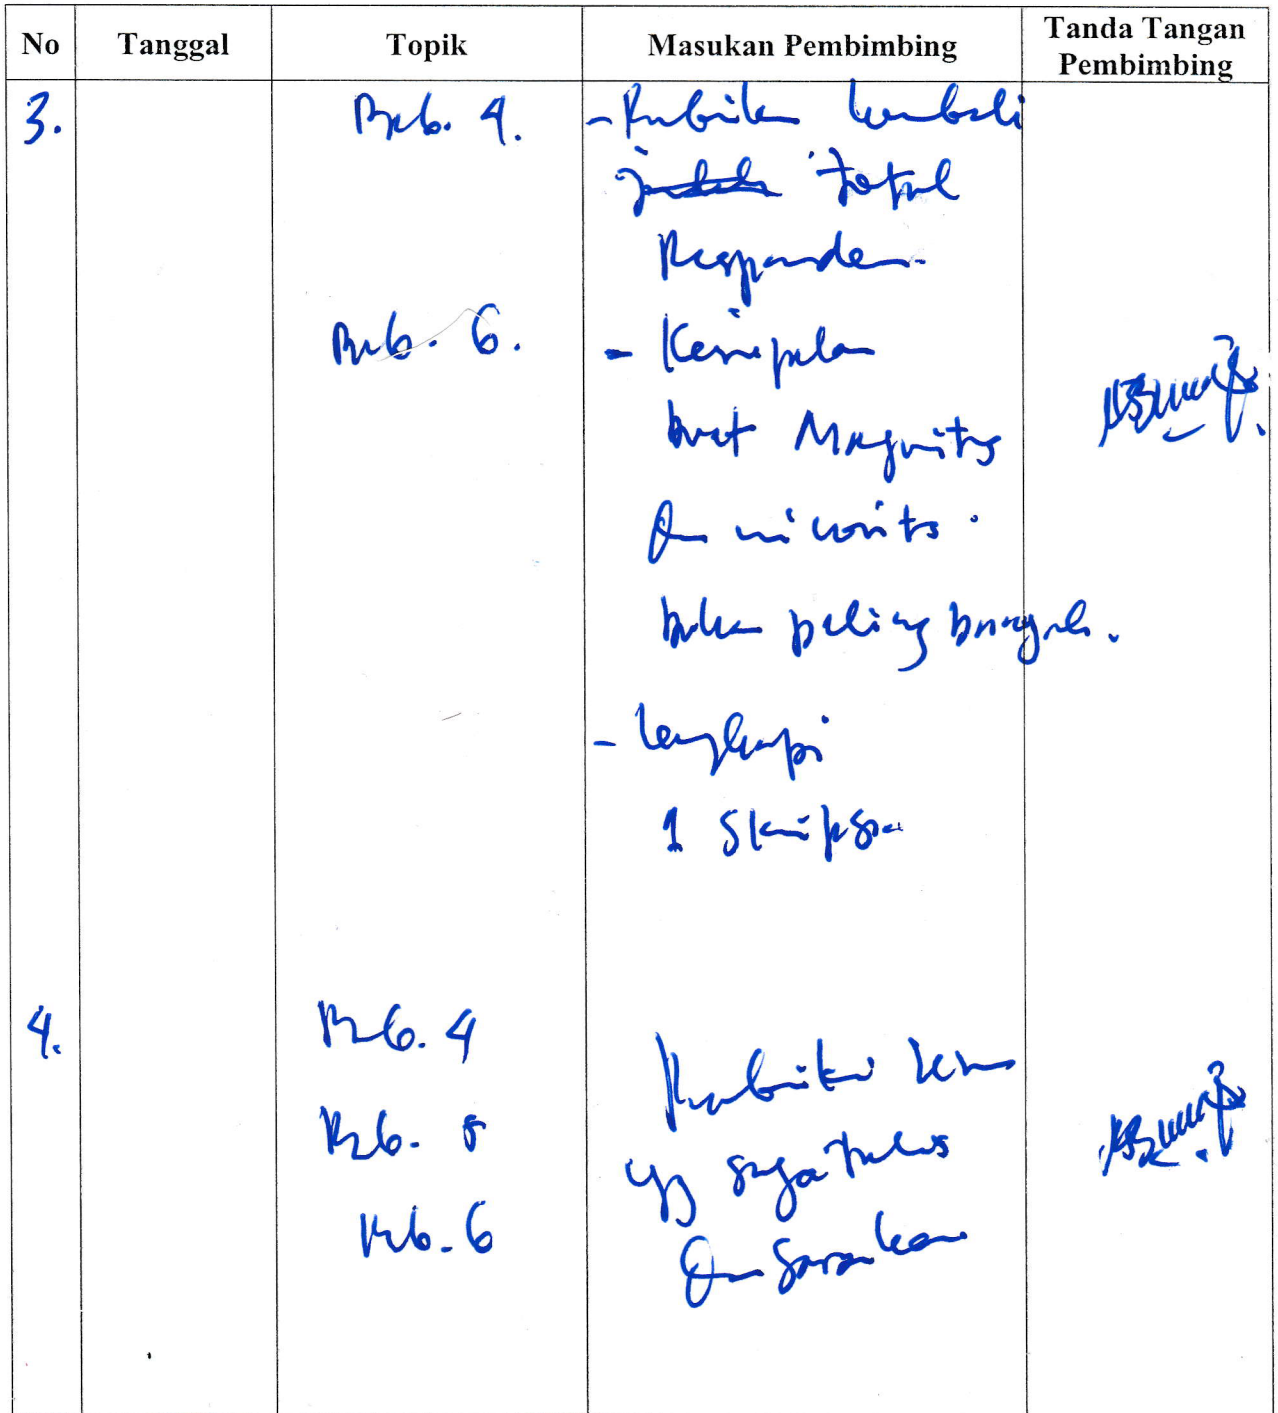 No Tanggal Topik Masukan Pembimbing Tanda Tangan Pembimbing
3. Bab. 4. - Perbaiki kembali
total
Responden.
Bab. 6. - Kesimpulan
buat Mayoritas
dan minoritas.
bukan paling banyak.
- lengkapi
1 Skripsi
4. Bab. 4
Perbaiki
Bab. 5
yg saya tulis
Bab. 6
dan sarankan